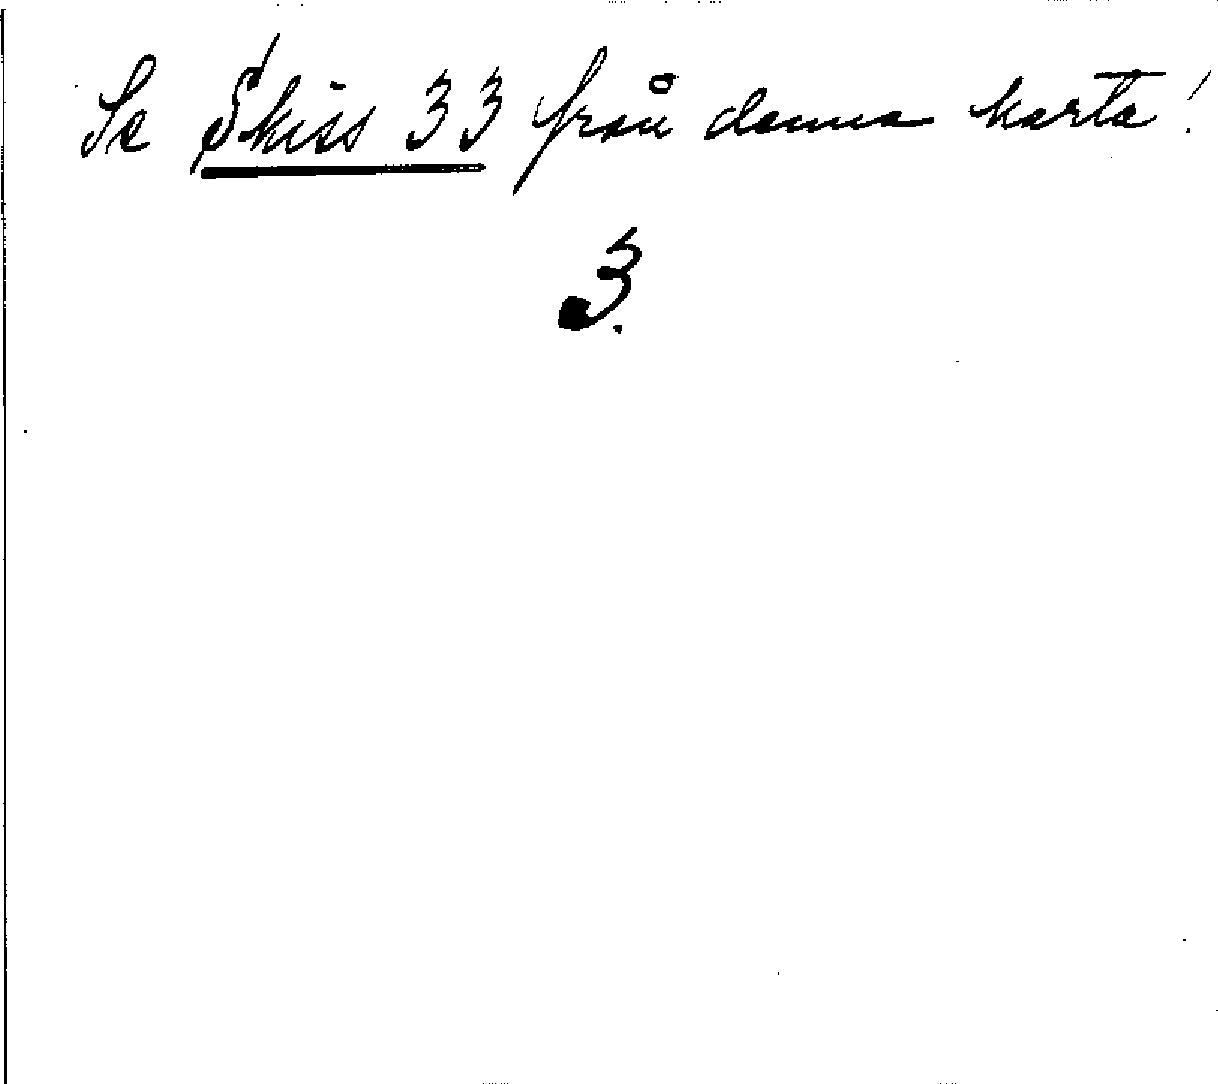 Se Skiss 33 från denna karta!
3.